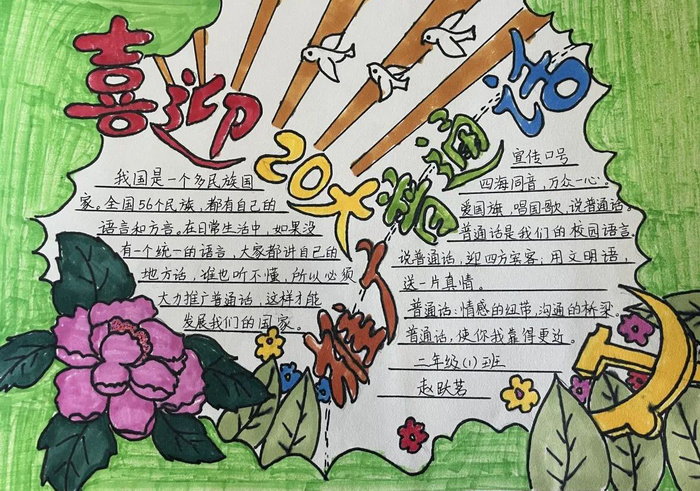 喜迎20大
推广普通话
我国是一个多民族国
家。全国56个民族，都有自己的
语言和方言。在日常生活中，如果没
有一个统一的语言，大家都讲自己的
地方话，谁也听不懂，所以必须
大力推广普通话，这样才能
发展我们的国家。
宣传口号
四海同音，万众一心。
爱国旗，唱国歌，说普通话。
普通话是我们的校园语言。
说普通话，迎四方宾客；用文明语，
送一片真情。
普通话：情感的纽带，沟通的桥梁。
普通话，使你我靠得更近。
二年级(1)班
赵跃茗